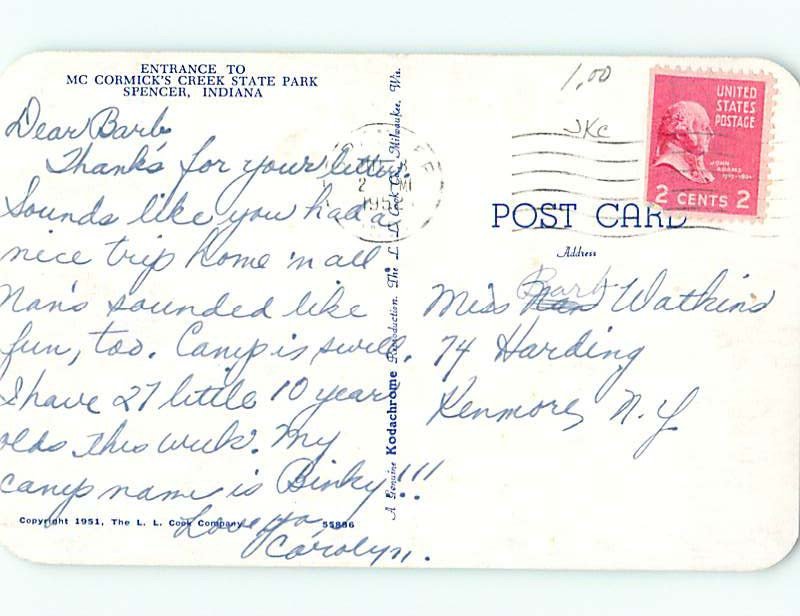 ENTRANCE TO
MC CORMICK'S CREEK STATE PARK
SPENCER, INDIANA
Dear Barb
Thanks for your letter.
Sounds like you had a
nice trip home 'n all
Nan's sounded like
fun, too. Camp is swell.
I have 27 little 10 year
olds this week. My
camp name is Binky!!!
Love ya,
Carolyn.
Copyright 1951, The L. L. Cook Company
55886
A Genuine Kodachrome Reproduction. The L. L. Cook Co., Milwaukee, Wis.
1.00
JKC
UNITED
STATES
POSTAGE
JOHN
ADAMS
2 CENTS 2
POST CARD
Address
Miss Barb Watkins
74 Harding
Kenmore, N.Y.